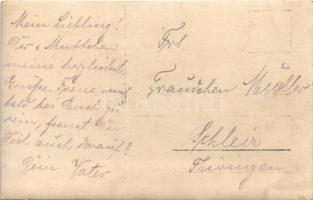 Mein Liebling!
Dir u Muttchen
meine herzlichste
Grüße. Freue mich
bald bei Euch zu
sein, freust Du
Dich auch darauf?
Dein Vater
Frl.
Traudchen Müller
Schleiz
Thüringen